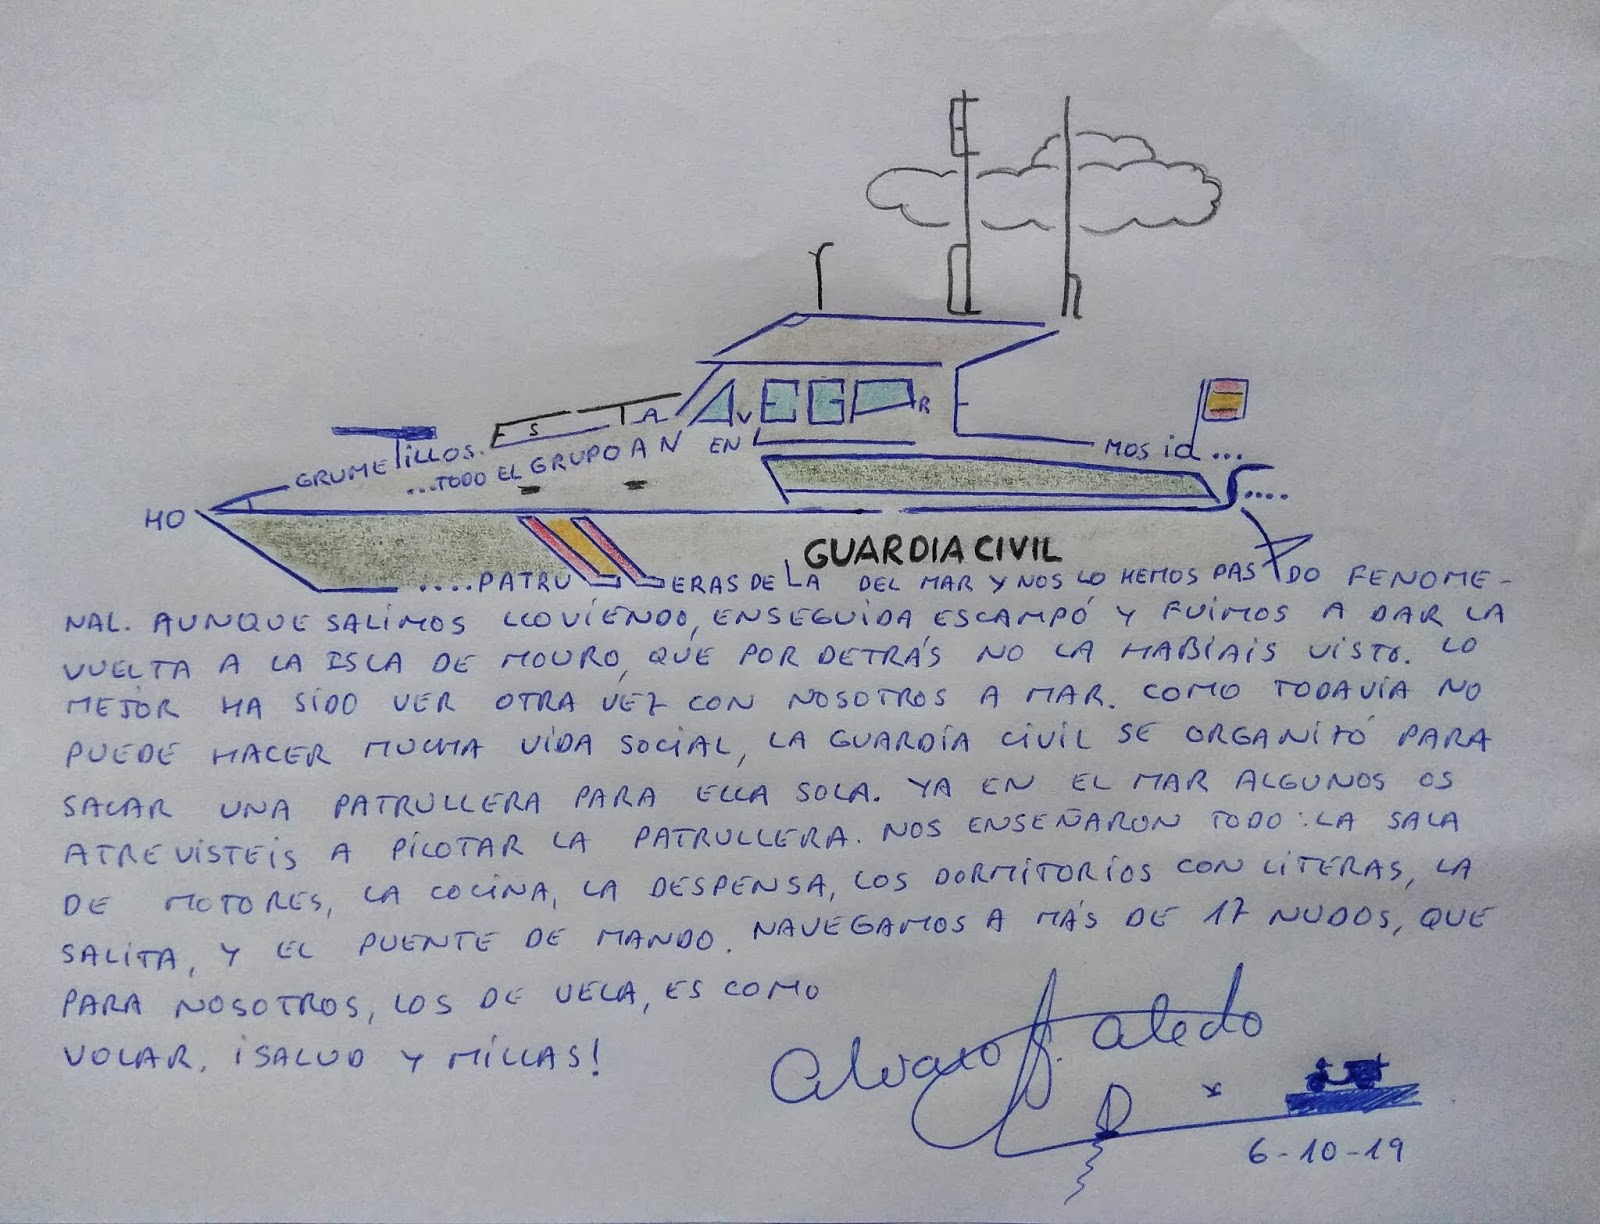 ES TA AVEGAR
GRUMETILLOS. EN MOS id...
...TODO EL GRUPO A N
HO ....
GUARDIA CIVIL
....PATRULLERAS DE LA DEL MAR Y NOS LO HEMOS PASADO FENOME-
NAL. AUNQUE SALIMOS LLOVIENDO, ENSEGUIDA ESCAMPÓ Y FUIMOS A DAR LA
VUELTA A LA ISLA DE MOURO, QUE POR DETRÁS NO LA HABIAIS VISTO. LO
MEJOR HA SIDO VER OTRA VEZ CON NOSOTROS A MAR. COMO TODAVÍA NO
PUEDE HACER MUCHA VIDA SOCIAL, LA GUARDIA CIVIL SE ORGANIZÓ PARA
SACAR UNA PATRULLERA PARA ELLA SOLA. YA EN EL MAR ALGUNOS OS
ATREVISTEIS A PILOTAR LA PATRULLERA. NOS ENSEÑARON TODO: LA SALA
DE MOTORES, LA COCINA, LA DESPENSA, LOS DORMITORIOS CON LITERAS, LA
SALITA, Y EL PUENTE DE MANDO. NAVEGAMOS A MÁS DE 17 NUDOS, QUE
PARA NOSOTROS, LOS DE VELA, ES COMO
VOLAR. ¡SALUD Y MILLAS!
Alvaro G. Aledo
6-10-19